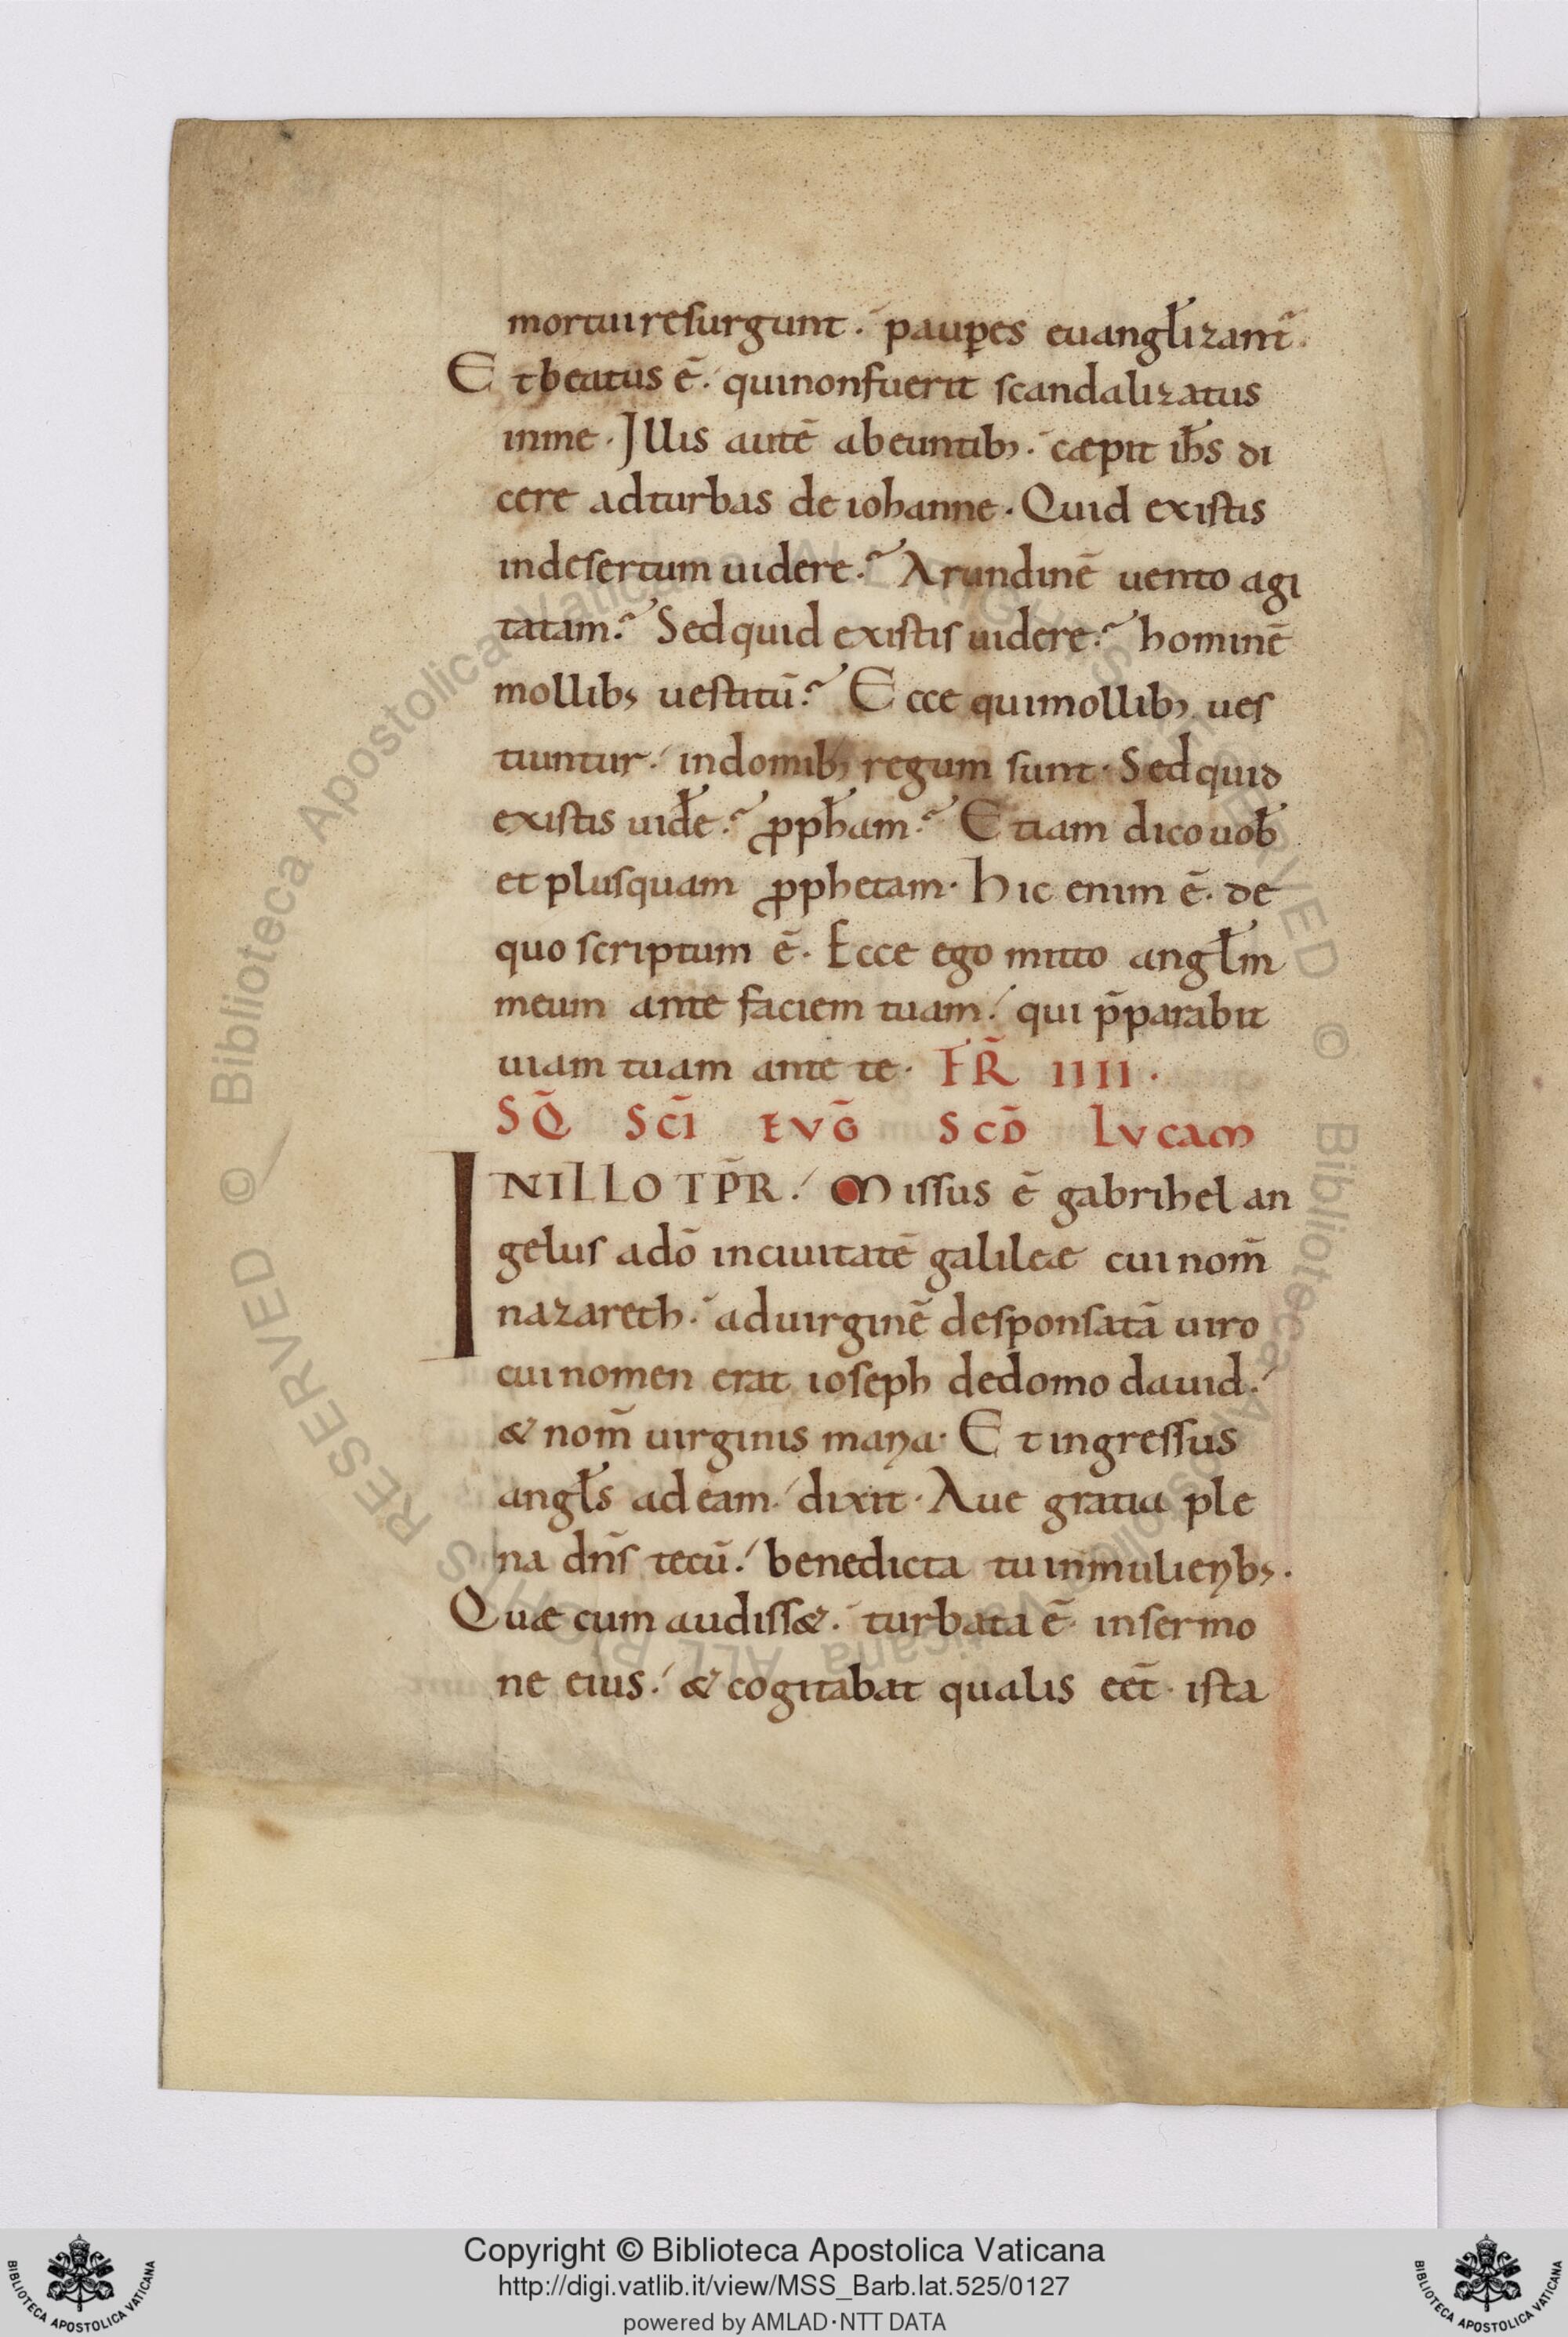 mortui resurgunt. paup̱es euangl̄izant᷑.
Et beatus ē. qui non fuerit scandalizatus
in me. Illis autē abeuntib; cæpit ih̄s di
cere ad turbas de iohanne. Quid existis
in desertum uidere? Arundinē uento agi
tatam? Sed quid existis uidere? hominē
mollib; uestitū? Ecce qui mollib; ues
tiuntur. in domib; regum sunt. Sed quid
existis uid̄e? ꝓph̄am? Etiam dico uob̄
et plusquam ꝓphetam. Hic enim ē. de
quo scriptum ē. Ecce ego mitto angl̄m
meum ante faciem tuam. qui p̄parabit
uiam tuam ante te. FR̄ IIII.
SQ̄ SC̄I EVḠ SCD̄ LVCAM
IN ILLO TP̄R. Missus ē gabrihel an
gelus a dō in ciuitatē galileæ cui nom̄
nazareth. ad uirginē desponsatā uiro
cui nomen erat ioseph de domo dauid.
& nom̄ uirginis maria. Et ingressus
angl̄s ad eam. dixit. Aue gratia ple
na dn̄s tecū. benedicta tu in mulierib;.
Quæ cum audiss&. turbata ē in sermo
ne eius. & cogitabat qualis eēt. ista
Copyright © Biblioteca Apostolica Vaticana
http://digi.vatlib.it/view/MSS_Barb.lat.525/0127
powered by AMLAD·NTT DATA
BIBLIOTECA APOSTOLICA VATICANA
BIBLIOTECA APOSTOLICA VATICANA
© Biblioteca Apostolica Vaticana ALL RIGHTS RESERVED
© Biblioteca Apostolica Vaticana ALL RIGHTS RESERVED